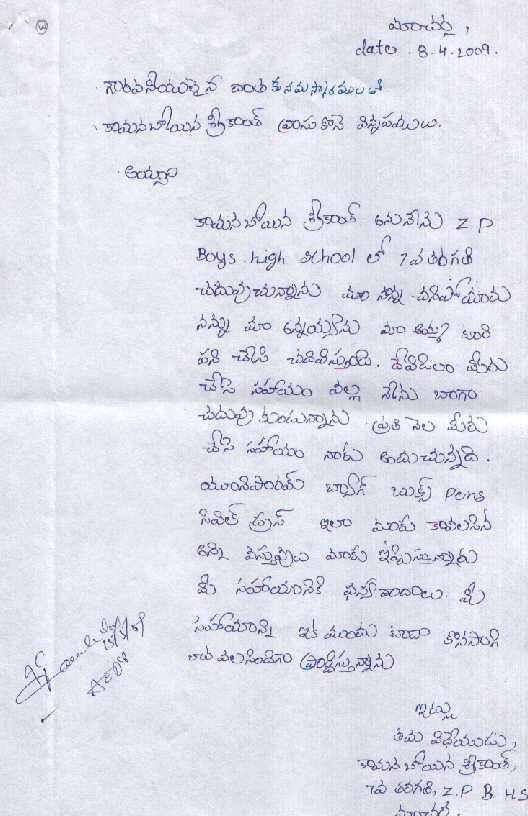 మాచర్ల,
date. 8.4.2009.
గౌరవనీయులైన దాతకు నమస్కారములతో
కామనబోయిన శ్రీకాంత్ వ్రాసుకొనే విన్నపములు.
అయ్యా
కామనబోయిన శ్రీకాంత్ అను నేను Z P
Boys high School లో 7వ తరగతి
చదువుచున్నాను మా నాన్న చనిపోయారు
నన్ను మా అన్నయ్యను మా అమ్మ కూలి
పని చేసి చదివిస్తుంది. మీరు
చేసే సహాయం వల్ల నేను బాగా
చదువుకుంటున్నాను ప్రతి నెల మీరు
చేసే సహాయం నాకు అందుచున్నది.
యూనిఫారమ్ బ్యాగ్ బుక్స్ Pens
సివిల్ డ్రస్ ఇలా మాకు కావలసిన
అన్ని వస్తువులు మాకు ఇప్పిస్తున్నారు
మీ సహాయానికి ధన్యవాదాలు. మీ
సహాయాన్ని ఇక ముందు కూడా కొనసాగి
ప్రార్ధిస్తున్నాను
ఇట్లు
తమ విధేయుడు,
కామనబోయిన శ్రీకాంత్,
7వ తరగతి, Z.P B H.S
మాచర్ల.